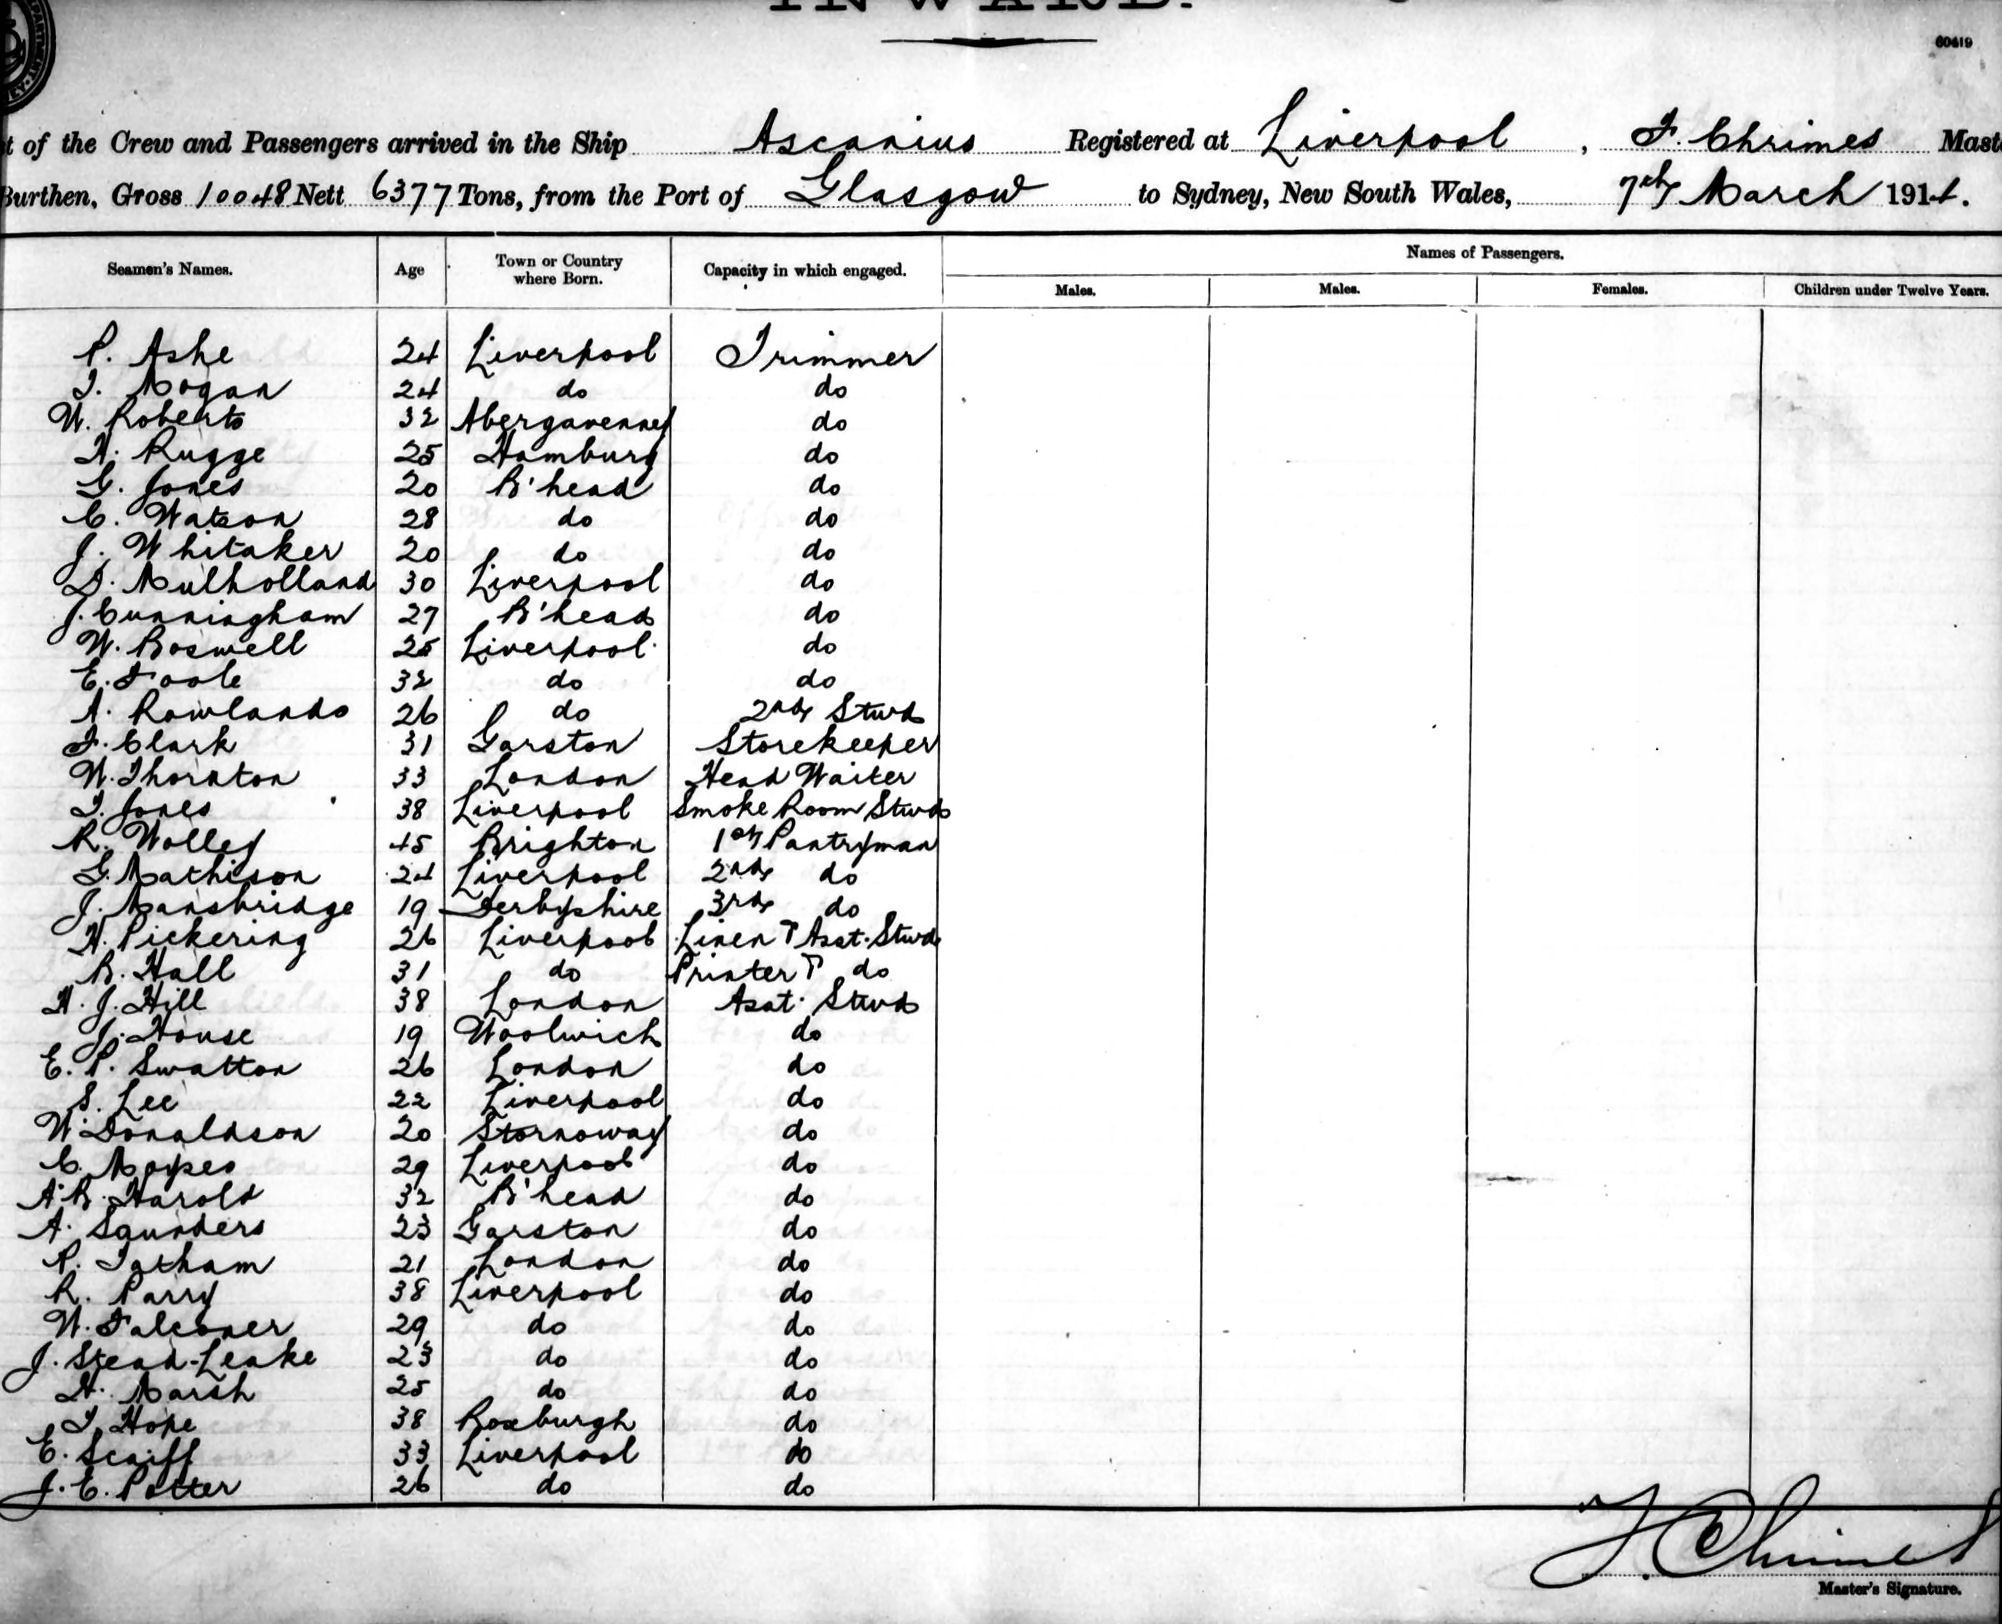 INWARD.
60419
t of the Crew and Passengers arrived in the Ship Ascanius Registered at Liverpool, F. Chrimes Mast
Burthen, Gross 10048 Nett 6377 Tons, from the Port of Glasgow to Sydney, New South Wales, 7th March 1914.
Names of Passengers.
Seamen's Names. Age Town or Country where Born. Capacity in which engaged. Males. Males. Females. Children under Twelve Years.
P. Ashe 24 Liverpool Trimmer
T. Mogan 24 do do
W. Roberts 32 Abergavenney do
H. Rugge 25 Hamburg do
G. Jones 20 B'head do
C. Watson 28 do do
J. Whitaker 20 do do
D. Mulholland 30 Liverpool do
J. Cunningham 27 B'head do
W. Boswell 25 Liverpool do
E. Toole 32 do do
A. Rowlands 26 do 2nd Stwd
F. Clark 31 Garston Storekeeper
W. Thornton 33 London Head Waiter
T. Jones 38 Liverpool Smoke Room Stwd
R. Wolley 45 Brighton 1st Pantryman
G. Mathison 24 Liverpool 2nd do
J. Mansbridge 19 Derbyshire 3rd do
H. Pickering 26 Liverpool Linen & Asst. Stwd
B. Hall 31 do Printer & do
H. J. Hill 38 London Asst. Stwd
J. House 19 Woolwich do
E. P. Swatton 26 London do
S. Lee 22 Liverpool do
W. Donaldson 20 Stornoway do
C. Moyses 29 Liverpool do
A. B. Harold 32 B'head do
A. Saunders 23 Garston do
P. Tatham 21 London do
R. Parry 38 Liverpool do
W. Falconer 29 do do
J. Stead-Leake 23 do do
H. Marsh 25 do do
T. Hope 38 Roxburgh do
E. Scaiff 33 Liverpool do
J. E. Potter 26 do do
F. Chrimes
Master's Signature.